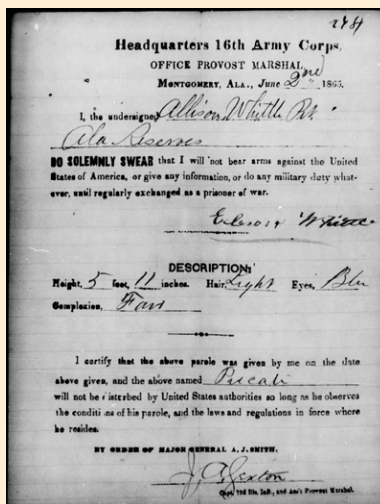 Headquarters 16th Army Corps,
OFFICE PROVOST MARSHAL,
MONTGOMERY, ALA., June 2nd 1865.
I, the undersigned Allison Whittle
Ala Reserves
DO SOLEMNLY SWEAR that I will not bear arms against the United
States of America, or give any information, or do any military duty what-
ever, until regularly exchanged as a prisoner of war.
DESCRIPTION:
Height, 5 feet, 11 inches. Hair, Light Eyes, Blu
Complexion, Fair
I certify that the above parole was given by me on the date
above given, and the above named
will not be disturbed by United States authorities so long as he observes
the conditions of his parole, and the laws and regulations in force where
he resides.
BY ORDER OF MAJOR GENERAL A. J. SMITH.
Capt. 72d Ills. Inf., and Ass't Provost Marshal.